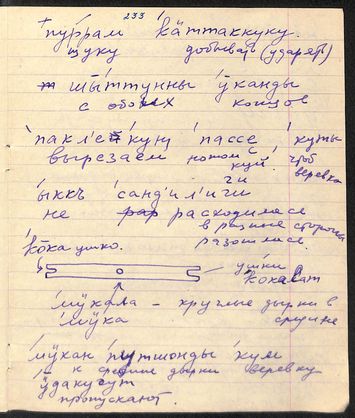 233
+ пуррам кӓттаккуку.
щуку добывать (ударять)
шыттунны ӱканды
с обоих концов
паклейкун пассе куты
вырезаем ножом чтоб
веревка
ыккъ сандилиги
не расходилась
в разные стороны
разошлись.
ко̄ка ушко.
ушки
кокават
мӱхала – круглые дырки в
мӱка середине
мӱкан путшонды кум
к средине дырки веревку
ӱдакугут
пропускают.